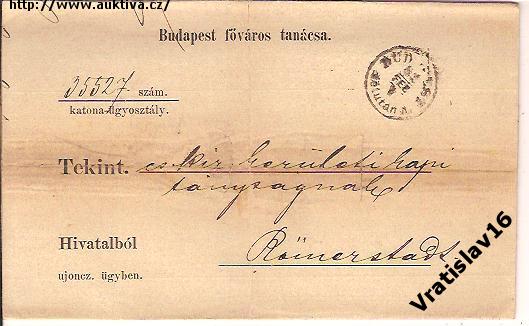 http://www.auktiva.cz/
Budapest főváros tanácsa.
35527 szám.
katona-ügyosztály.
BUDAPEST
Tekint. cs kir kerületi kapi
tánysagnak
Hivatalból
ujoncz. ügyben.
Römerstadt
Vratislav16